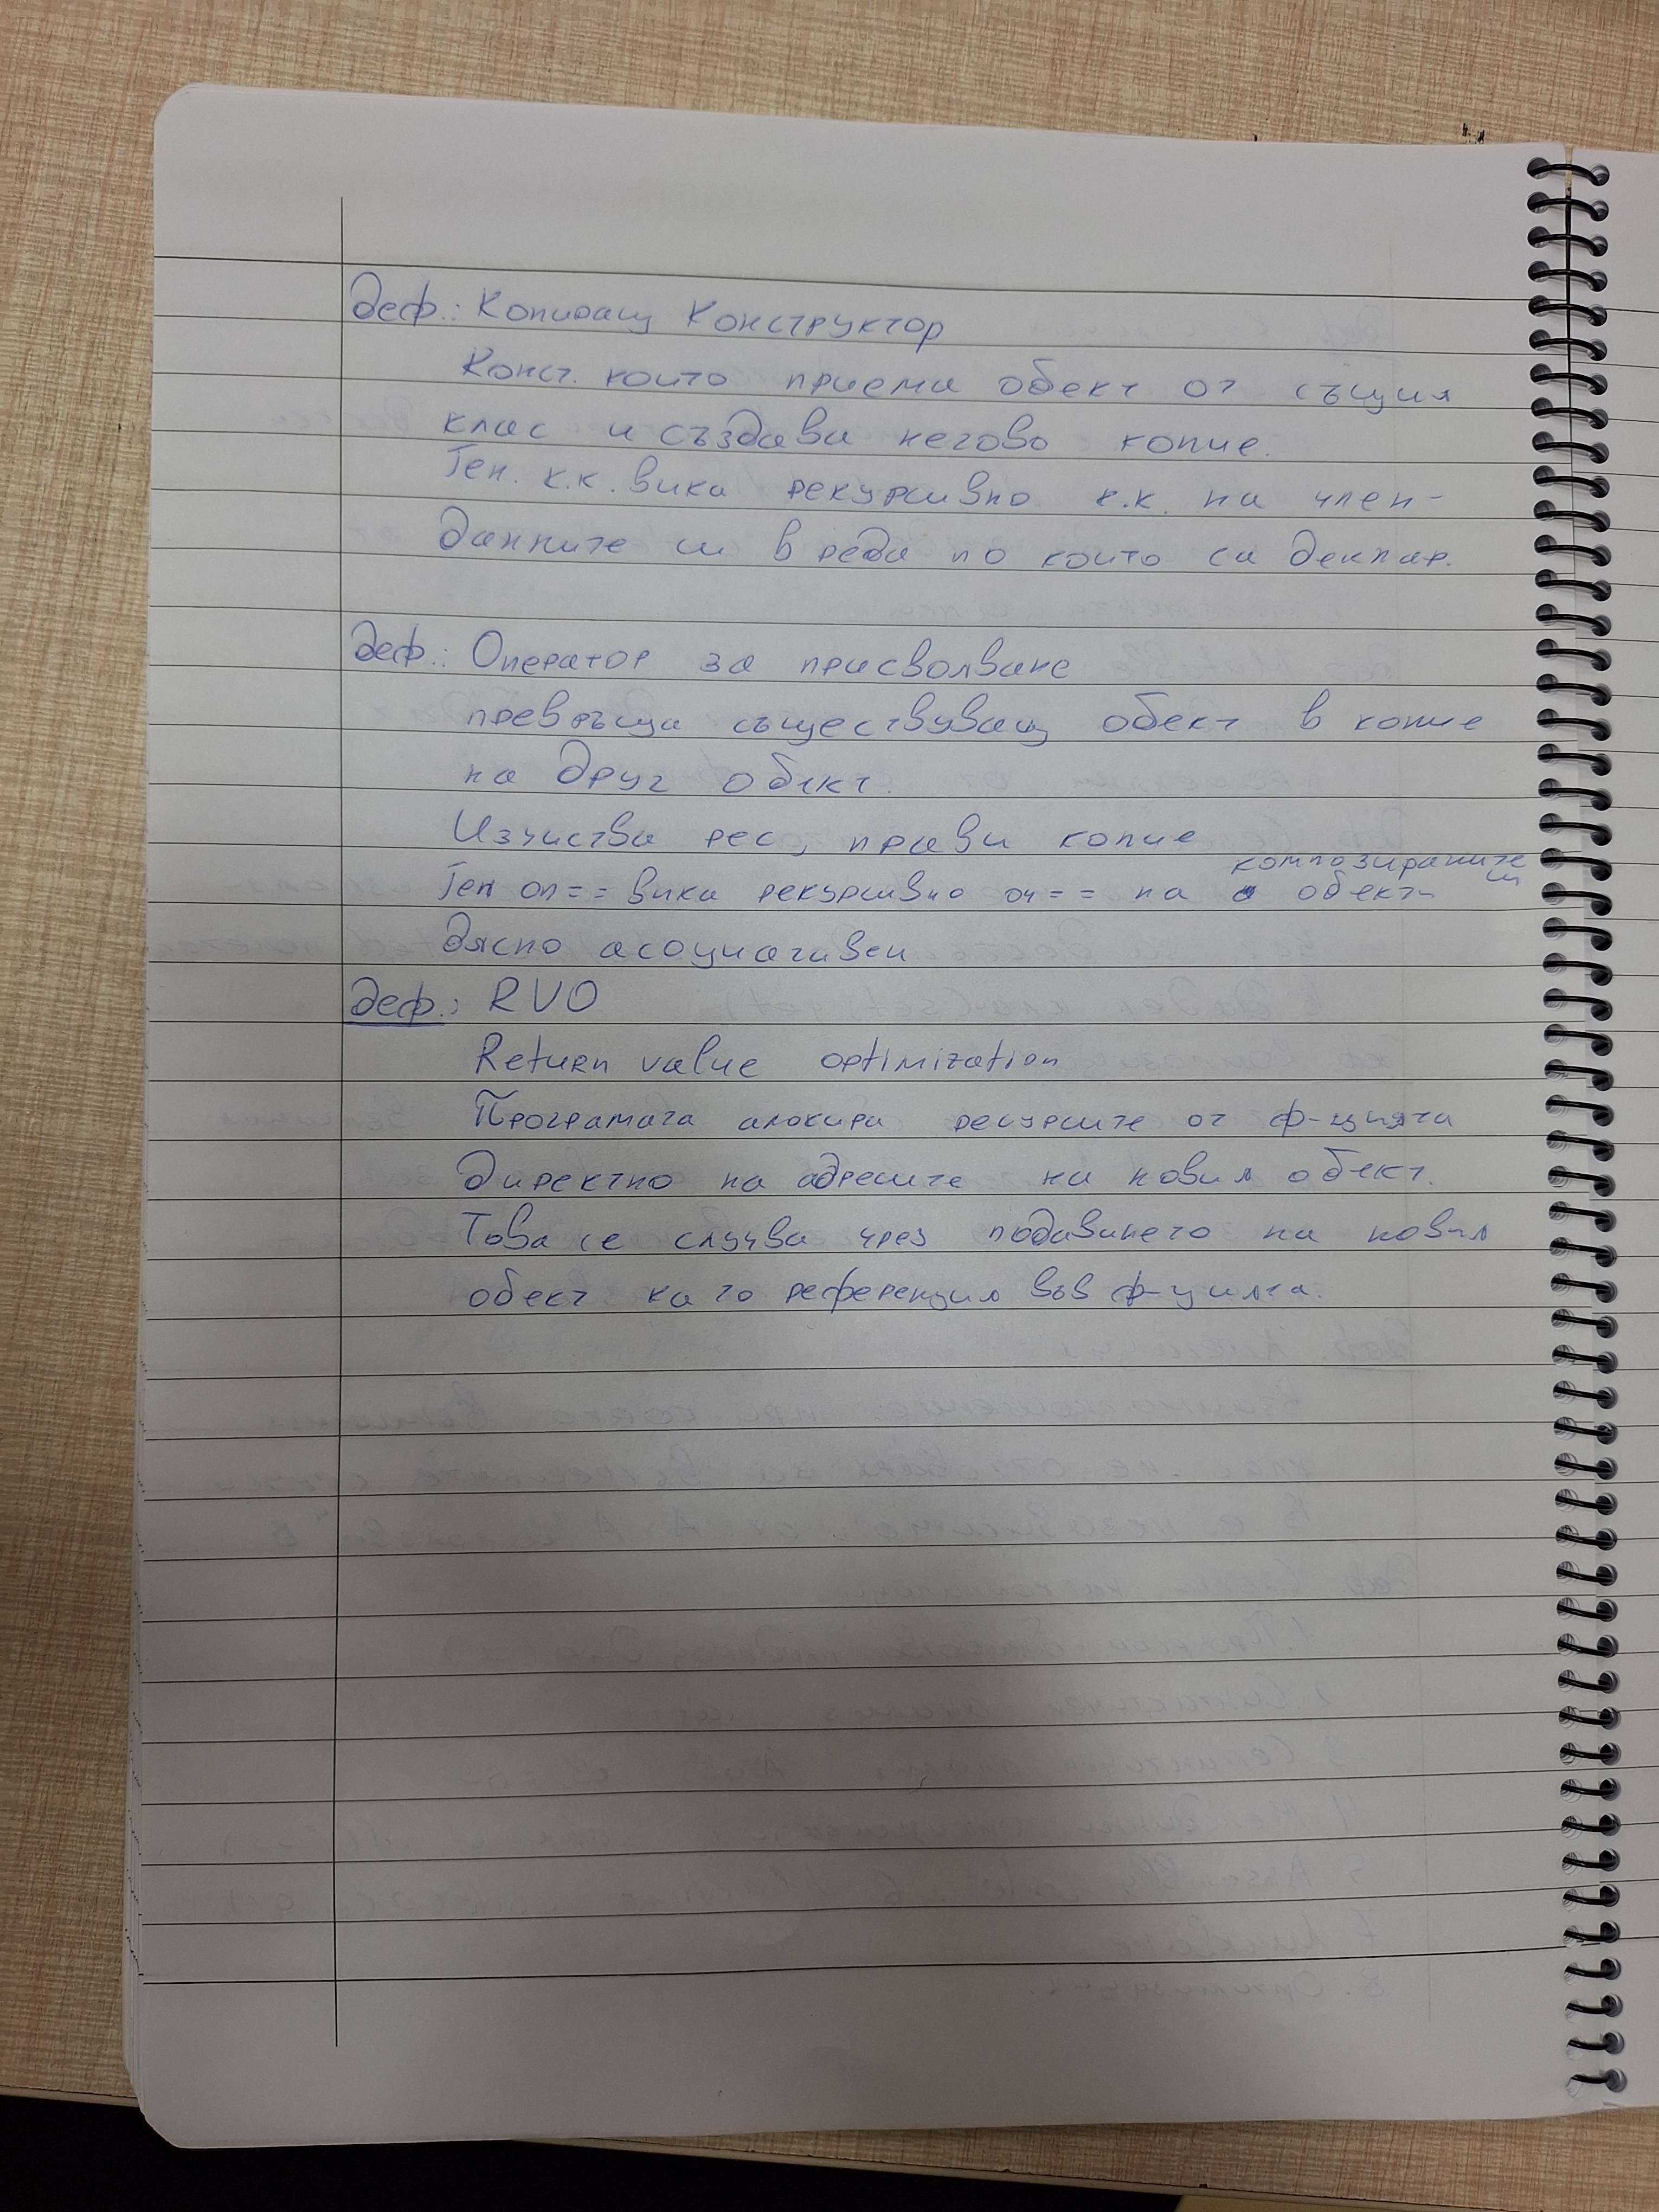 деф.: Копиращ Конструктор
Конст. който приема обект от същия
клас и създава негово копие.
Ген. к.к. вика рекурсивно к.к. на член-
данните си в реда по който са деклар.
деф.: Оператор за присволване
превръща съществуващ обект в копие
на друг обект.
Изчиства рес, прави копие
композираните
Ген оп== вика рекурсивно оп== на обекти си
Дясно асоциативен
деф.: RVO
Return value optimization
Програмата алокира ресурсите от ф-цията
директно на адресите на новия обект.
Това се случва чрез подаването на новия
обект като референция във ф-цията.